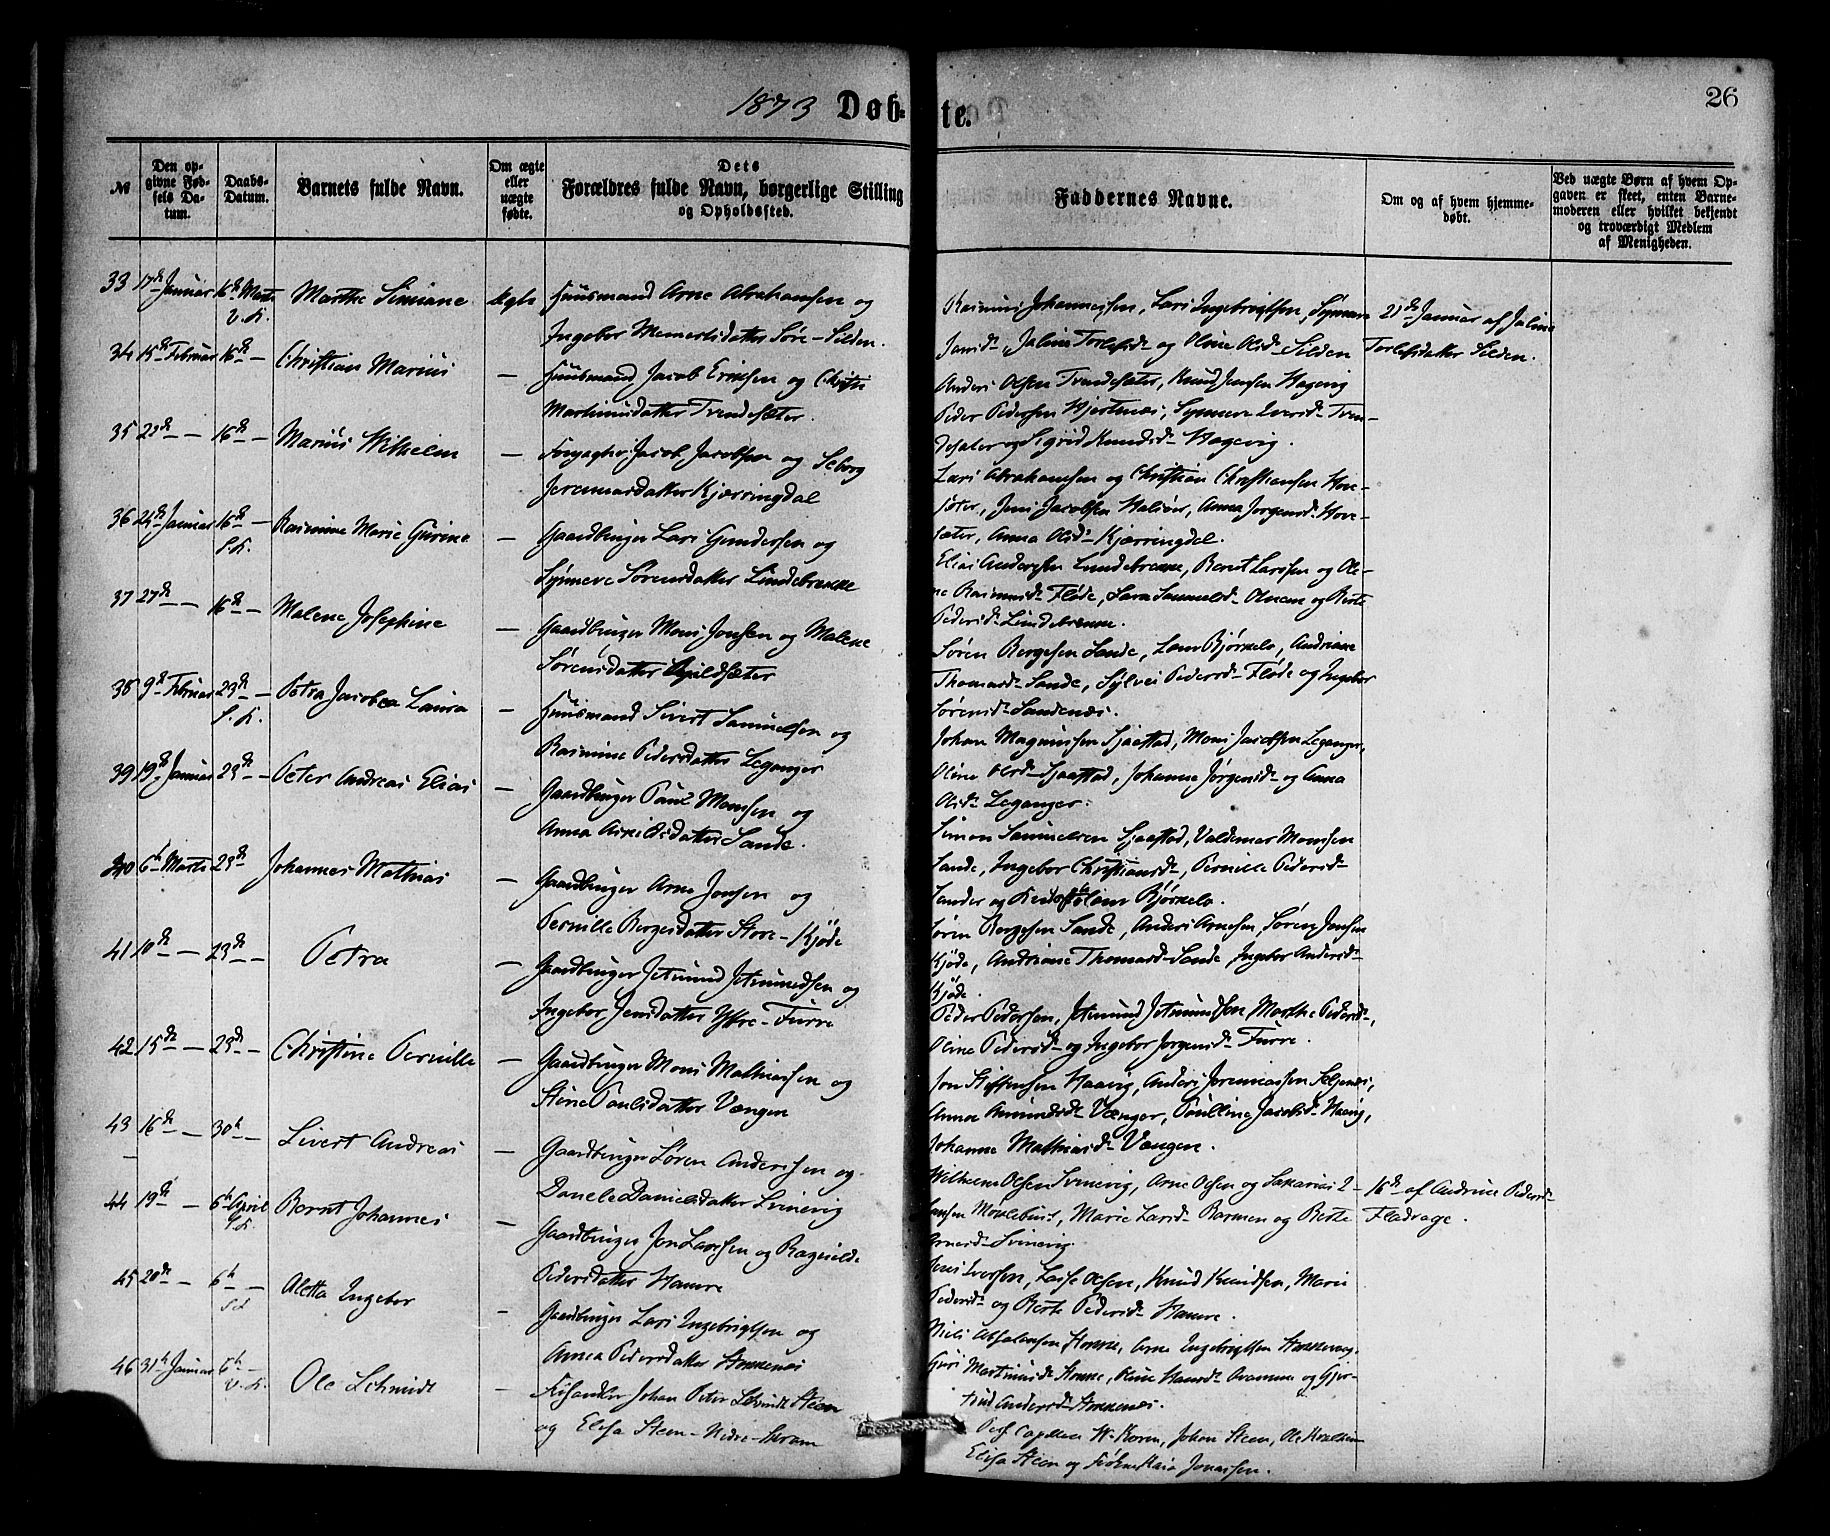 1873 Døb-
te.
26
№
Den op-
givne Fød-
sels Da-
tum.
Daabs-
Datum.
Barnets fulde Navn.
Om ægte
eller
uægte
fødte.
Dets
Forældres fulde Navn, borgerlige Stilling
og Opholdssted.
Faddernes Navne.
Om og af hvem hjemme-
døbt.
Ved uægte Børn af hvem Op-
gaven er skeet, enten Barne-
moderen eller hvilket bekjendt
og troværdigt Medlem
af Menigheden.
33 17de Januar 16de Marts Marthe Simiane ægte Huusmand Arne Abrahamsen og
V. K.
Ingebor Memertsdatter Søre-Silden.
Rasmus Johannessen, Lars Ingebrigtsen, Synneve
Jansdr, Jaline Torlefsdr og Oline Olsdr Silden
21de Januar af Jaline
Torlefsdatter Silden.
34 15de Februar 16de — Christian Marius — Huusmand Jacob Eriksen og Christi
Martinusdatter Tvendesæter.
Anders Olsen Tvendesæter, Knud Jensen Hagevig
Peder Pedersen Hjertenæs, Synneve Iversdr Tven-
desæter og Sigrid Knudsdr Hagevig.
35 22de — 16de — Marius Wilhelm — Forpagter Jacob Jacobsen og Seborg
Jeremiasdatter Kjærringdal
Lars Abrahamsen og Christian Christiansen Hove-
sæter, Jens Jacobsen Halsør, Anna Jørgensdr Hove-
sæter, Anna Olsdr Kjærringdal.
36 24de Januar 16de — Rasmine Marie Gurine — Gaardbruger Lars Gundersen og
S. K.
Synneve Sørensdatter Lundebrekke
Elias Andersen Lundebrekke, Bernt Larssen og Ole-
ne Rasmusdr Fløde, Sara Samuelsdr og Berte
Pedersdr Lundebrekke.
37 27de — 16de — Malene Josephine — Gaardbruger Mons Jonsen og Malene
Sørensdatter
Søren Børgesen Sande, Bjørkelo, Andriane
Thomasdr Sande, Sylvei Pedersdr Fløde og Ingebor
Sørensdr Sandenæs.
38 9de Februar 23de — Petra Jacobea Laura — Huusmand Sivert Samuelsen og
S. K.
Rasmine Pedersdatter Leganger
Johan Magnussen Sjaastad, Mons Jacobsen Leganger,
Oline Olsdr Sjaastad, Johanne Jørgensdr og Anna
Olsdr Leganger.
39 19de Januar 23de — Peter Andreas Elias — Gaardbruger Paul Monssen og
Anna Arnesdatter Sande.
Simon Samuelsen Sjaastad, Valdemar Monssen
Sande, Ingebor Christiansdr, Pernille Pedersdr
Sande og Bjørkelo.
40 6te Marts 23de Johannes Mathias — Gaardbruger Arne Jonsen og
Pernille Børgesdatter Store-Kjøde
Søren Børgesen Sande, Anders Arnesen, Søren Jonsen
Kjøde, Andriane Thomasdr Sande, Ingebor Andersdr
Kjøde.
41 10de — 23de — Petra — Gaardbruger Jetmund Jetmundsen og
Ingebor Jensdatter Ytre-Furre
Peder Pedersen, Jetmund Jetmundsen Marthe Pedersdr,
Oline Pedersdr og Ingebor Jørgensdr Furre.
42 15de — 23de — Christine Pernille — Gaardbruger Mons Mathiassen og
Stine Poulsdatter Vængen
Jon Steffensen Haavig, Anders Jeremiassen Seljenæs,
Anna Amundsdr Vængen, Poulline Jacobsdr Haavig,
Johanne Mathiasdr Vængen.
43 16de — 30te — Sivert Andreas — Gaardbruger Søren Anderssen og
Danele Danielsdatter Svinevig
Wilhelm Olsen Svinevig, Arne Olsen og Sakarias L-
arsen Moslebust, Marie Larsdr Barmen og Berte
Arnesdr Svinevig.
16de af Andrine Pedersdr
Fladvage.
44 19de — 6te April Bernt Johannes — Gaardbruger Jon Larssen og Ragnilde
S. K.
Pedersdatter Hamre
Jens Iversen, Lasse Olsen, Knud Knudsen, Marie
Pedersdr og Berte Pedersdr Hamre.
45 20de — 6te — Aletta Ingebor — Gaardbruger Lars Ingebrigtsen og
S. K.
Anna Pedersdatter Stokkenæs
Niels Absalonsen Stokke, Arne Ingebrigtsen Stokkenæs,
Guri Martinusdr Stokke, Hansdr og Gjer-
trud Andersdr Stokkenæs.
46 31te Januar 6te — Ole Schmidt — Johan Peter Schmidt Steen
V. K.
og Elisa Steen - Nedre-
Pers. Capellan W. Koren, Johan Steen, Ole
Elisa Steen og Jonassen.